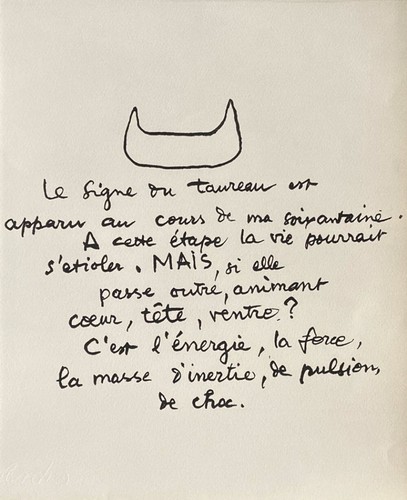 Le signe du taureau est
apparu au cours de ma soixantaine.
A cette étape la vie pourrait
s'etioler. MAIS, si elle
passe outre, animant
cœur, tête, ventre ?
C'est l'énergie, la force,
la masse d'inertie, de pulsion,
de choc.